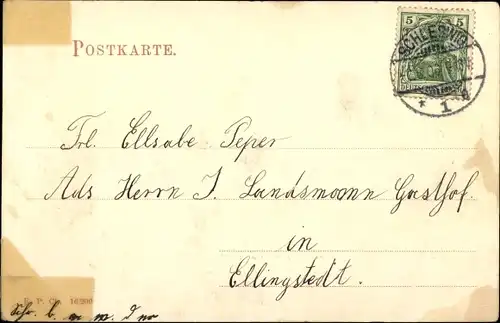 POSTKARTE.
5 5
SCHLESWIG
* 1 d
Frl. Ellsabe Peper
Ads Herrn J. Landsmann Gasthof.
in
Ellingstedt.
P. Ch. 16200
b. m. d